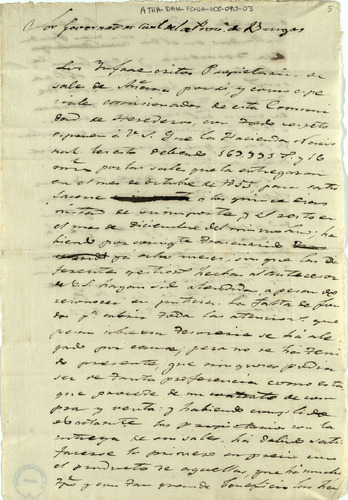 ATHA-DAH-FCHUA-005-090-03
5
Sor Governador civil de la Prova. de Burgos
Los Infraescritos Propietarios en
sales de Añana por sí, y como espe
ciales comisionados de esta Comuni
dad de Herederos, con todo respeto
exponen á V.S. Que la Hacienda nacio
nal les está debiendo 169,991 rs. y 16
mrs. por las sales que la entregaron
en el mes de octubre de 1835, para satis
facerse á los quince dias
mitad de su importe y el resto en
el mes de Diciembre del mismo: ha
biendo por consigte. trascurrido
ya ocho meses, sin que las di
ferentes gestiones hechas al Antecesor
de V.S. hayan sido atendidas, a pesar de
reconocer su justicia. La falta de fon
dos pa. cubrir todas las atenciones, que
pesan sobre esa Tesoreria se há ale
gado por causa; pero no se ha teni
do presente, que ninguna podia
ser de tanta preferencia como esta,
que procede de un contrato de com
pra y venta: y habiendo cumplido
los propietarios con la
entrega de sus sales, há debido satis
facerse lo primero su precio con
el producto de aquellas, que há mucho
tpo. y con tan grande beneficio las há